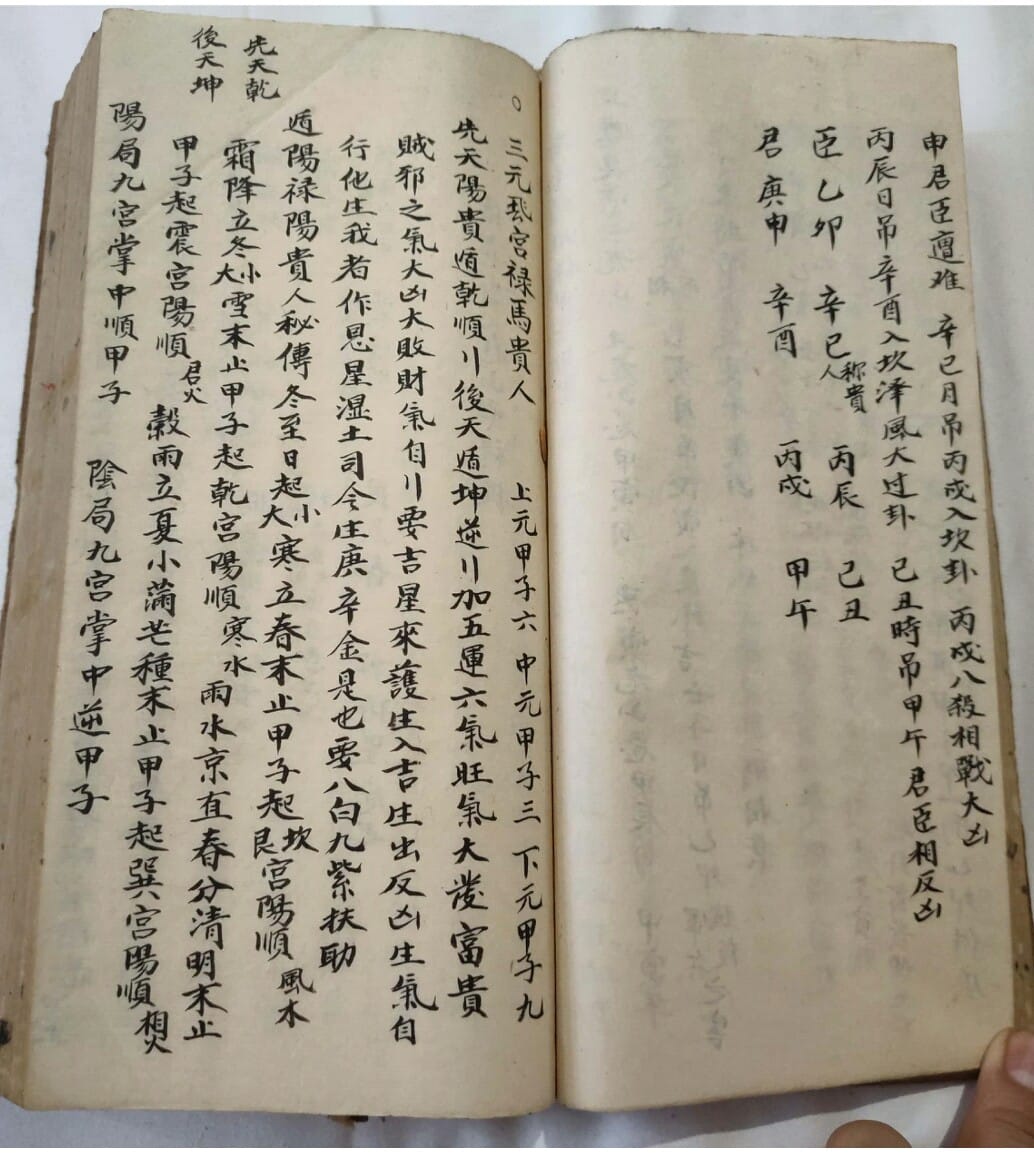 申君臣遭难 辛巳月吊丙戌入坎卦 丙戌八殺相戰大凶
丙辰日吊辛酉入坎泽風大过卦 己丑時吊甲午君臣相反凶
臣乙卯 辛巳称貴人 丙辰 己丑
君庚申 辛酉 丙戌 甲午
○三元飛宮禄馬貴人 上元甲子六 中元甲子三 下元甲子九
先天陽貴遁乾順川後天遁坤逆川加五運六氣旺氣大發富貴
賊邪之氣大凶大敗財氣自川要吉星來護生入吉生出反凶生氣自
行他生我者作恩星湿土司令庄庚辛金是也要八白九紫扶助
遁陽禄陽貴人秘傳冬至日起小大寒立春末止甲子起坎艮宮陽順 風木
霜降立冬小大雪末止甲子起乾宮陽順寒水 雨水京直春分清明末止
甲子起震宮陽順 君火 穀雨立夏小滿芒種末止甲子起巽宮陽順 相火
陽局九宮掌中順甲子 陰局九宮掌中逆甲子
先天乾
後天坤